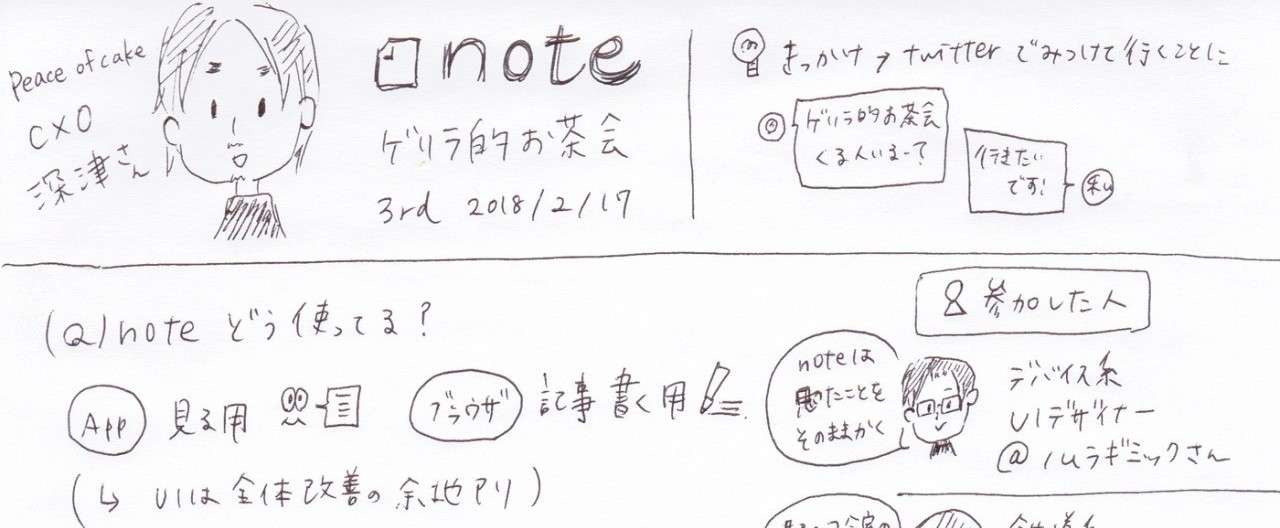 Peace of cake
CXO
深津さん
note
ゲリラ的お茶会
3rd 2018/2/17
きっかけ → twitter でみつけて行くことに
ゲリラ的お茶会
くる人いまー?
行きたい
です!
私
(Q) note どう使ってる?
App 見る用
ブラウザ 記事書く用
(↳ UIは全体改善の余地アリ)
参加した人
noteは
思ったことを
そのままかく
デバイス系
UIデザイナー
@ノムラギミックさん